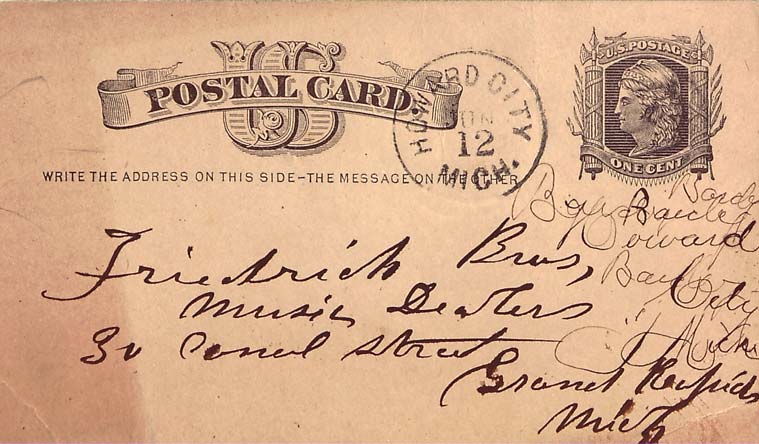 US
POSTAL CARD.
HOWARD CITY
JUN
12
MICH.
U.S. POSTAGE
ONE CENT
WRITE THE ADDRESS ON THIS SIDE-THE MESSAGE ON THE OTHER
Friedrich Bros,
Music Dealers
30 Canal Street
Grand Rapids
Mich
Howard
City
Mich